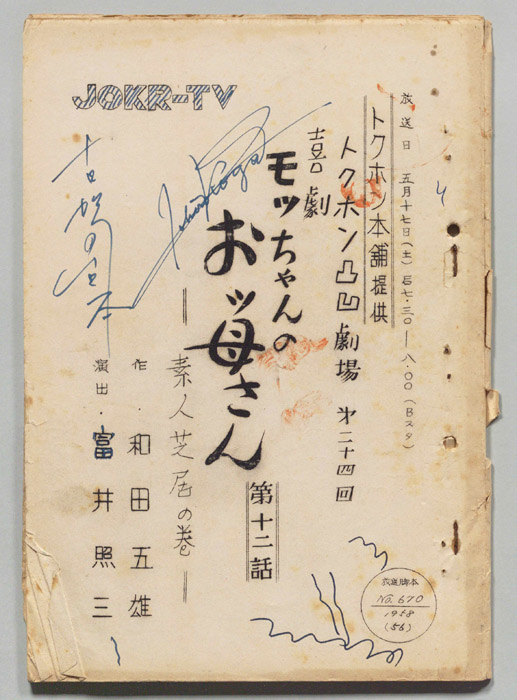 放送日 五月十七日(土)后七・三〇―八・〇〇(Bスタ)
トクホン本舗提供
トクホン凸凹劇場 第二十四回
喜劇
モッちゃんの
おッ母さん
第十二話
― 素人芝居の巻 ―
作・和田五雄
演出・富井照三
JOKR-TV
放送脚本
No.670
1958
(56)